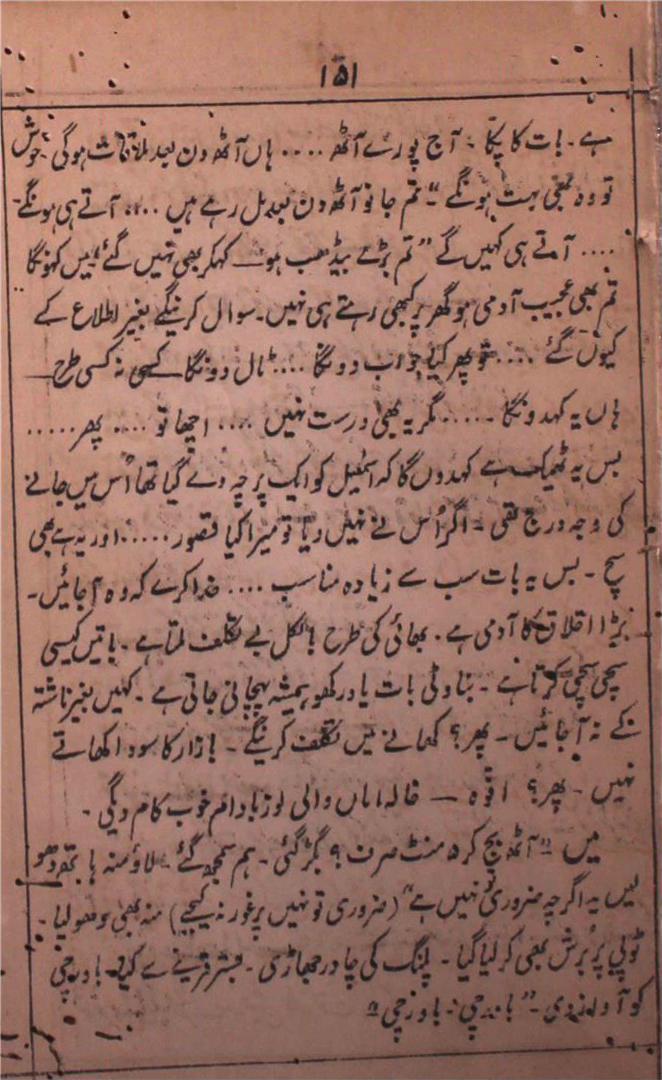 ۱۵۱
ہے۔ بات کا پکا۔ آج پورے آٹھ .... ہاں آٹھ دن بعد ملاقات ہوگی۔ خوش
تو وہ بھی بہت ہونگے۔ تم جانو آٹھ دن بعد مل رہے ہیں .... آتے ہی ہونگے۔
.... آتے ہی کہیں گے "تم بڑے بیڈھب ہو۔ کہکر بھی نہیں گئے" میں کہونگا
تم بھی عجیب آدمی ہو گھر پر کبھی رہتے ہی نہیں۔ سوال کرینگے بغیر اطلاع کے
کیوں گئے .... تو پھر کیا جواب دونگا .... ٹال دونگا کسی نہ کسی طرح
ہاں یہ کہدونگا ..... مگر یہ بھی درست نہیں .... اچھا تو .... پھر .....
بس یہ ٹھیک ہے کہدوں گا کہ اسمٰعیل کو ایک پرچہ دے گیا تھا اُس میں جانے
کی وجہ درج تھی۔ اگر اُس نے نہیں دیا تو میرا کیا قصور ..... اور یہ ہے بھی
سچ۔ بس یہ بات سب سے زیادہ مناسب .... خدا کرے کہ وہ آجائیں۔
بڑا اخلاق کا آدمی ہے۔ بھائی کی طرح بالکل بے تکلف ملتا ہے۔ باتیں کیسی
سچی سچی کرتا ہے۔ بناوٹی بات یاد رکھو ہمیشہ پہچانی جاتی ہے۔ کہیں بغیر ناشتہ
کے نہ آجائیں۔ پھر؟ کھانے میں تکلف کرینگے۔ بازار کا سودا کھاتے
نہیں۔ پھر؟ افوہ — خالہ اماں والی لوز بادام خوب کام دیگی۔
میں "آٹھ بج کر ۵ منٹ صرف؟ بگڑ گئی۔ ہم سمجھ گئے۔ لاؤ منہ ہاتھ دھو
لیں یہ اگرچہ ضروری تو نہیں ہے" (ضروری تو نہیں پر غور نہ کیجیے) منہ بھی دھو لیا۔
ٹوپی پر بُرش بھی کر لیا گیا۔ پلنگ کی چادر جھاڑی۔ بستر قرینے سے کیا۔ باورچی
کو آواز دی۔ "باورچی۔ باورچی"